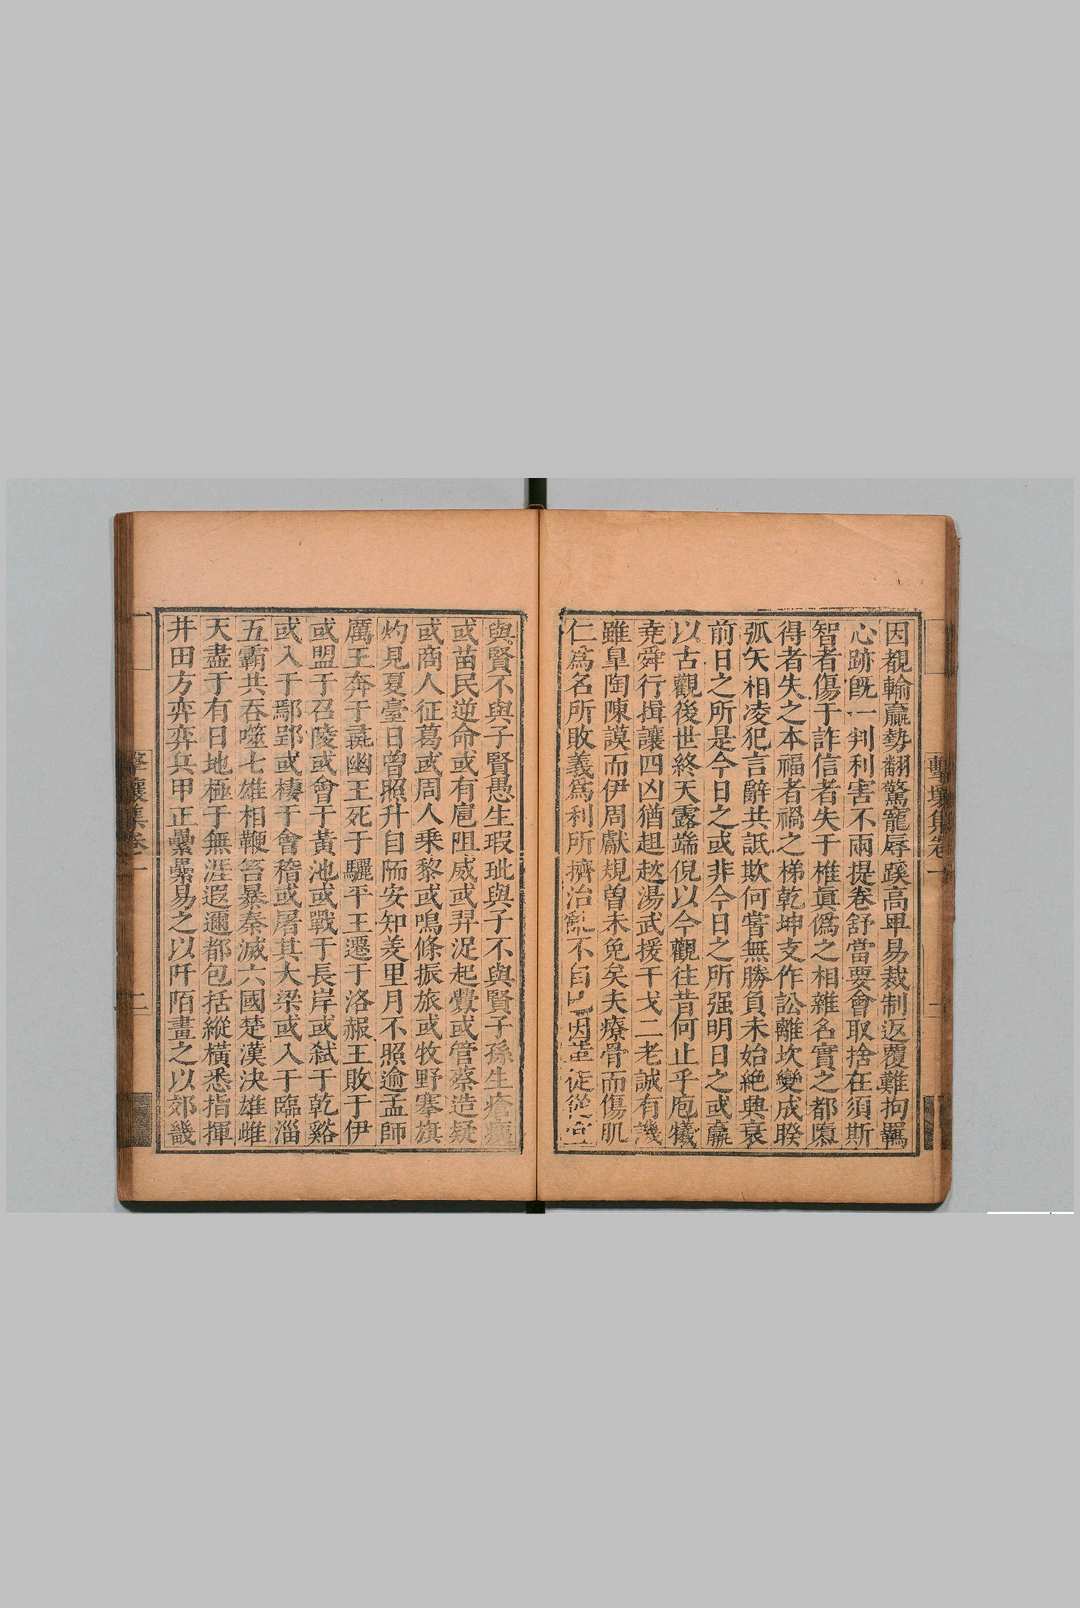 因觀輸贏勢翻驚寵辱蹊高卑易裁制返覆難拘羈
心跡旣一判利害不兩提卷舒當要會取捨在須斯
智者傷于詐信者失于椎眞僞之相雜名實之都隳
得者失之本福者禍之梯乾坤支作訟離坎變成睽
弧矢相凌犯言辭共詆欺何嘗無勝負未始絶興衰
前日之所是今日之或非今日之所强明日之或羸
以古觀後世終天露端倪以今觀往昔何止乎庖犧
堯舜行揖讓四凶猶趄趑湯武援干戈二老誠有譏
雖臯陶陳謨而伊周獻規曾未免矣夫療骨而傷肌
仁爲名所敗義爲利所擠治亂不自已因革徒從宜
與賢不與子賢愚生瑕玼與子不與賢子孫生瘡痍
或苗民逆命或有扈阻威或羿浞起釁或管蔡造疑
或商人征葛或周人乗黎或鳴條振旅或牧野搴旗
灼見夏臺日曾照升自陑安知羑里月不照逾孟師
厲王奔于彘幽王死于驪平王遷于洛赧王敗于伊
或盟于召陵或會于黃池或戰于長岸或弑于乾谿
或入于鄢郢或棲于會稽或屠其大梁或入于臨淄
五霸共吞噬七雄相鞭笞暴秦滅六國楚漢決雄雌
天盡于有日地極于無涯遐邇都包括縱橫悉指揮
井田方弈弈兵甲正纍纍易之以阡陌畫之以郊畿
擊壤集卷一
二
擊壤集卷一
二